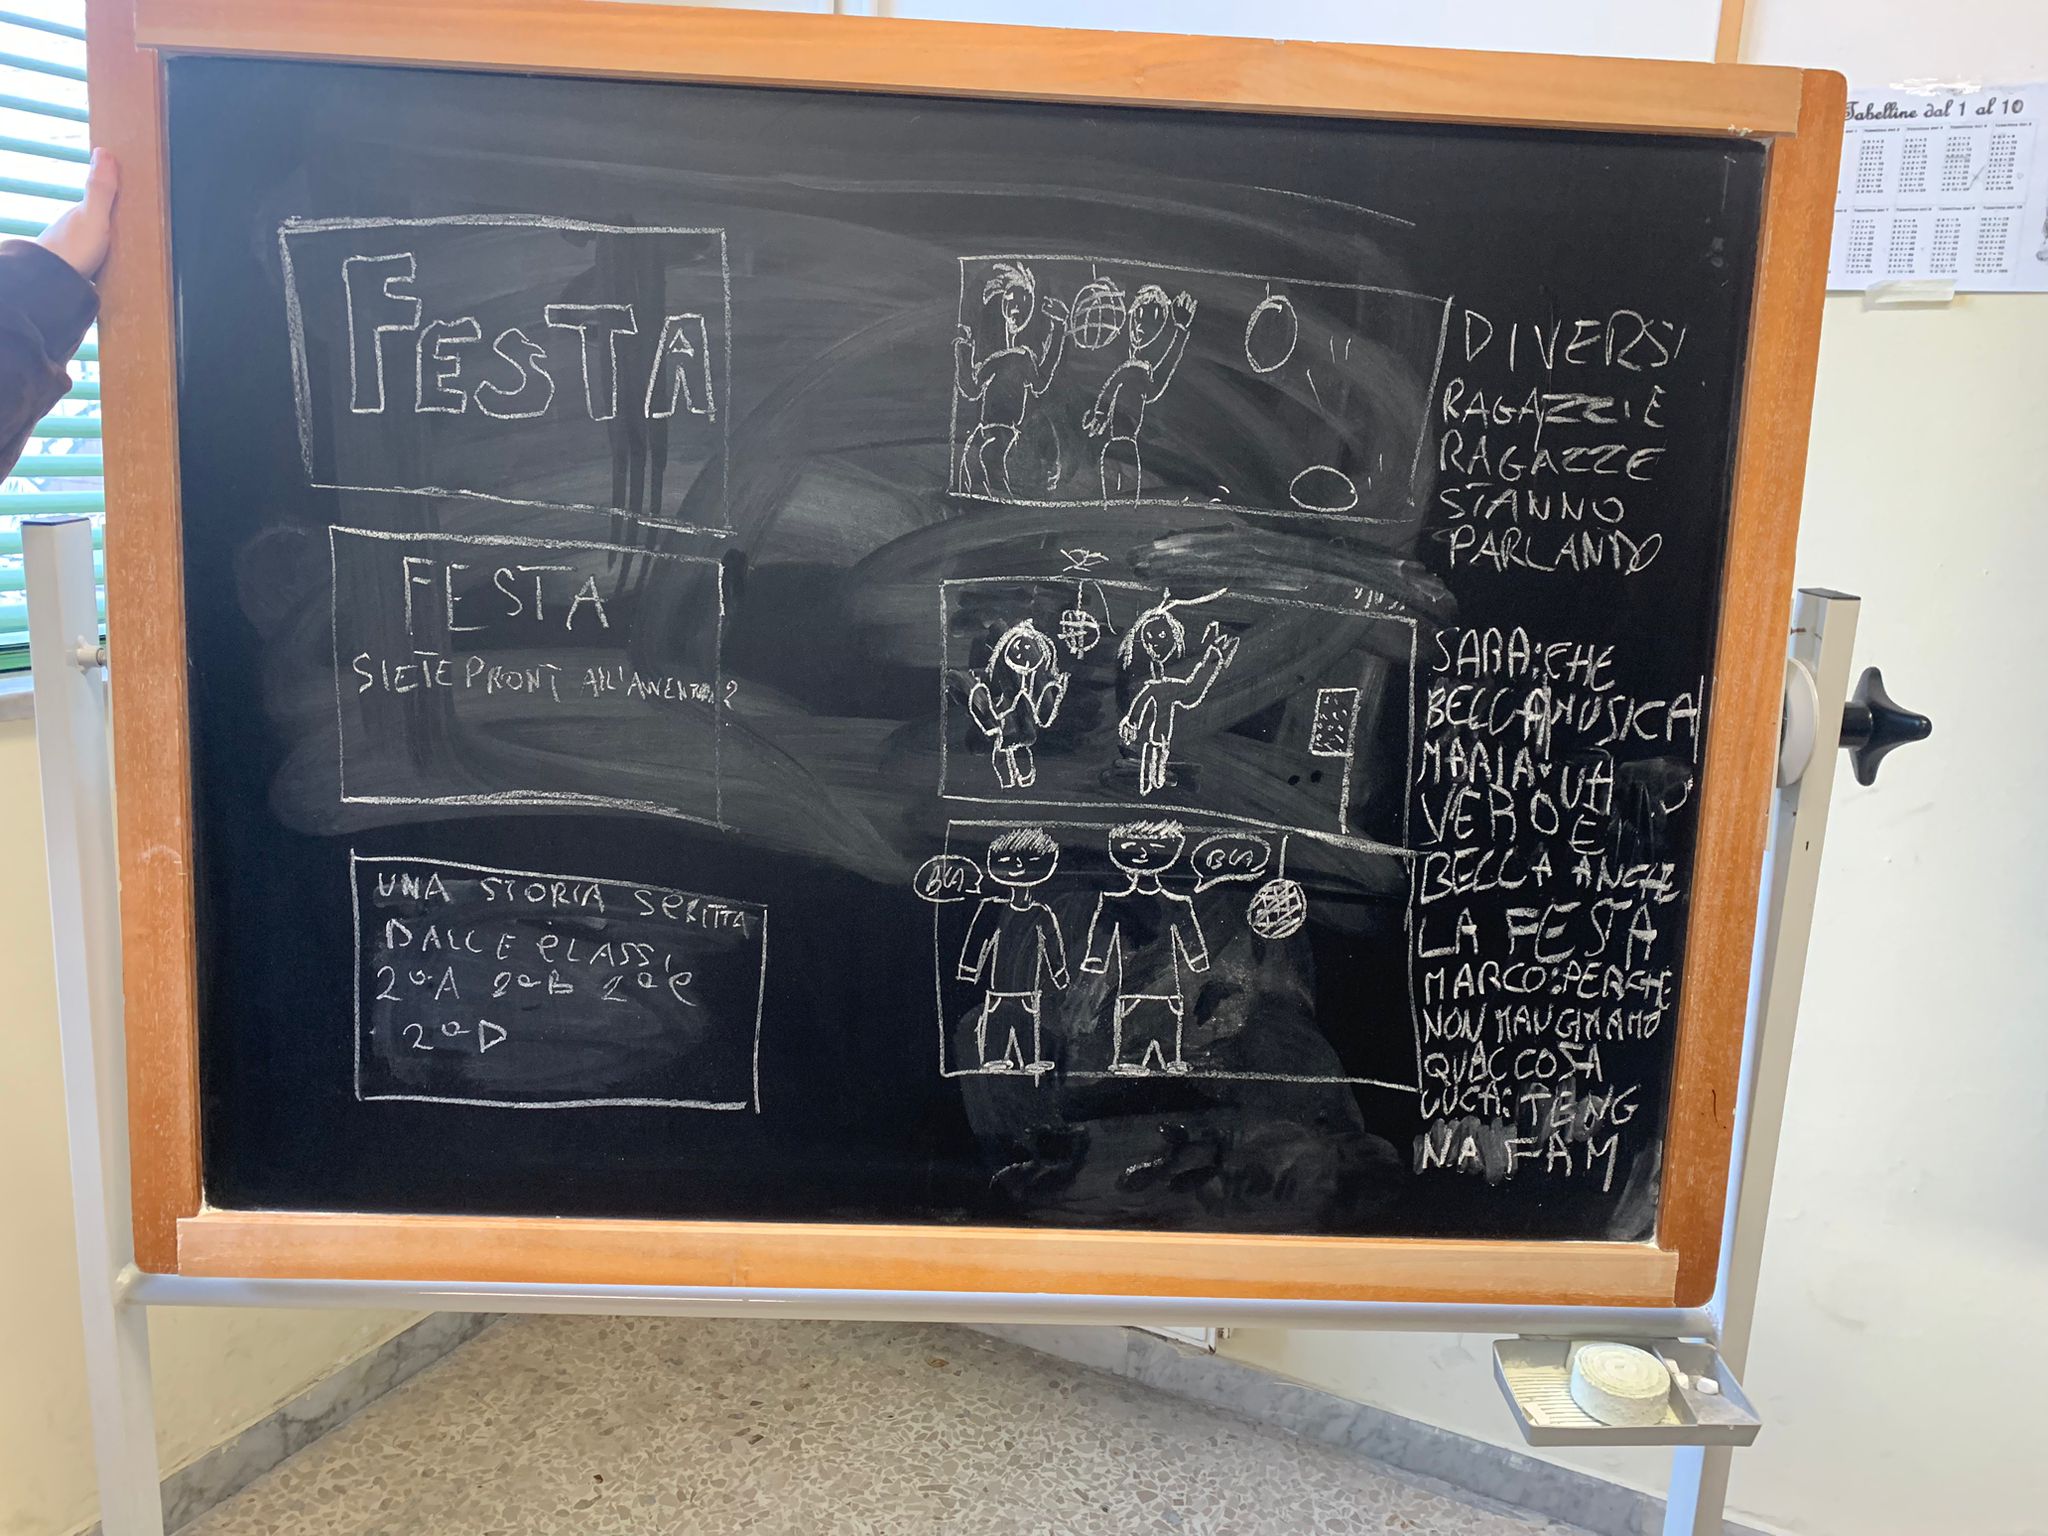 FESTA
FESTA
SIETE PRONTI ALL'AVVENTURA?
UNA STORIA SCRITTA
DALLE CLASSI
2ªA 2ªB 2ªC
2ªD
DIVERSI
RAGAZZI E
RAGAZZE
STANNO
PARLANDO
SARA: CHE
BELLA MUSICA
MARIA:
VERO E
BELLA ANCHE
LA FESTA
MARCO: PERCHE
NON MANGIAMO
QUALCOSA
LUCA: TENG
NA FAM
BLA
BLA
Tabelline dal 1 al 10